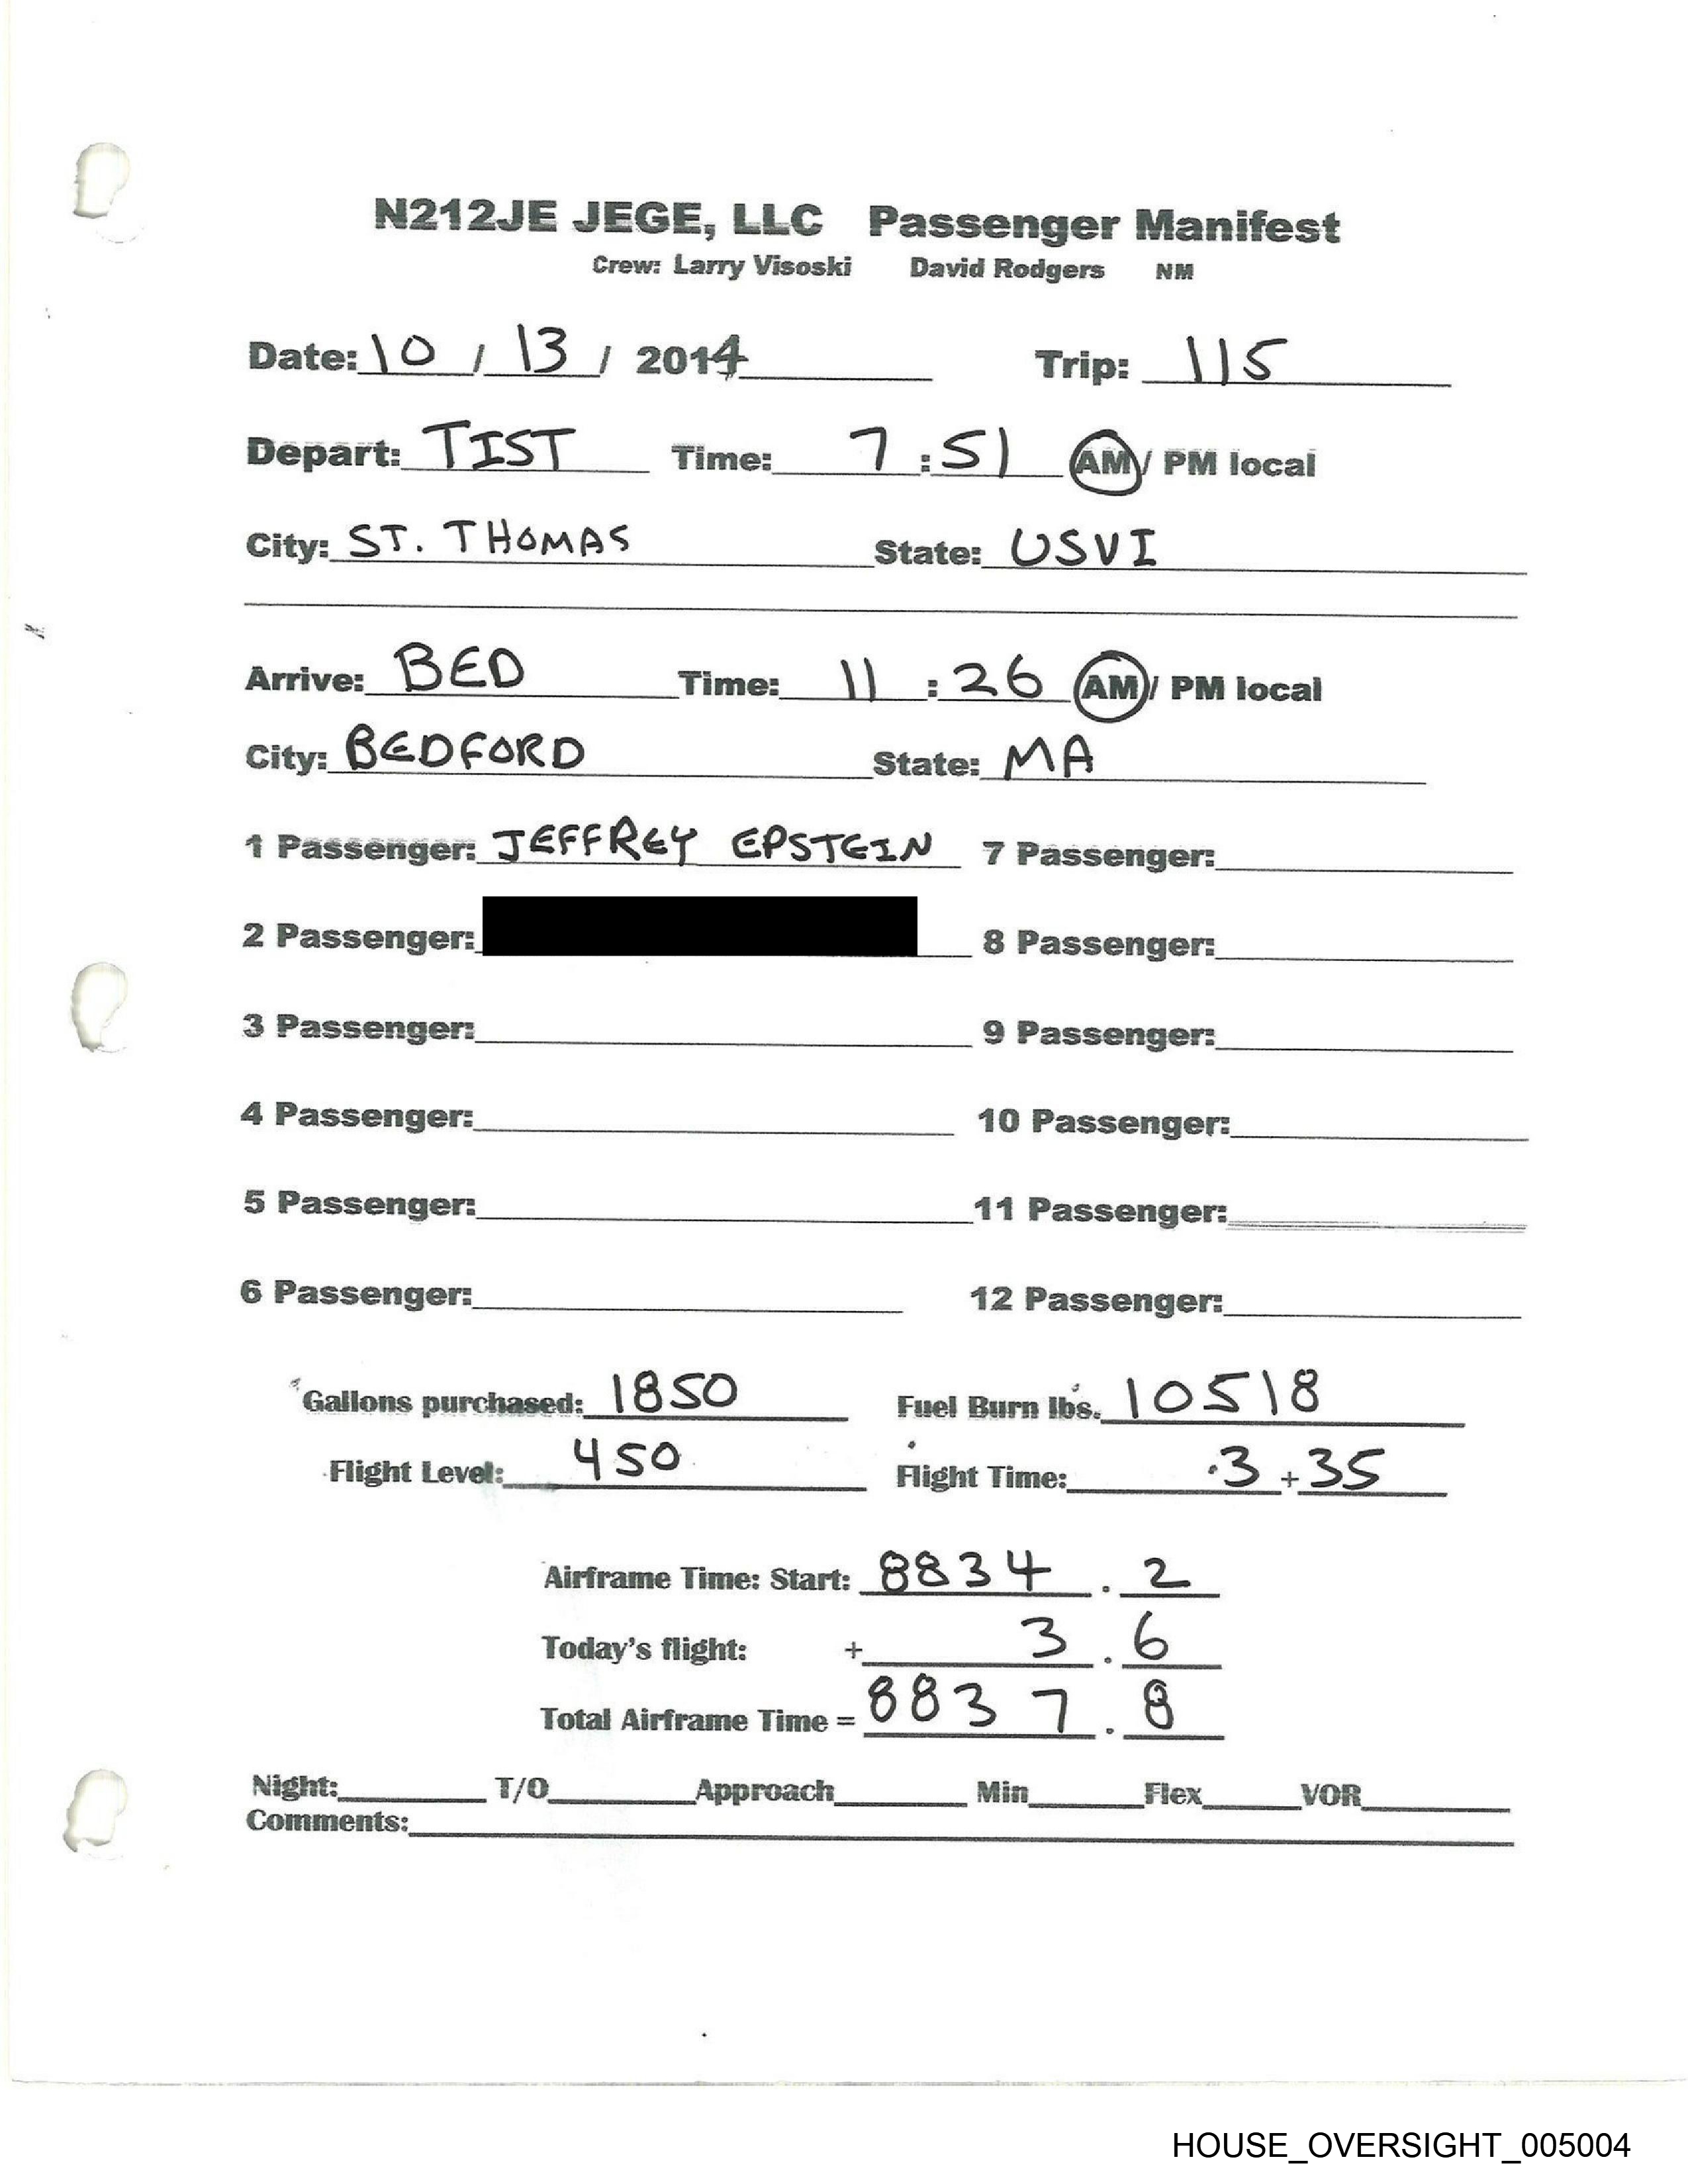 N212JE JEGE, LLC Passenger Manifest
Crew: Larry Visoski David Rodgers NM
Date: 10 / 13 / 2014 Trip: 115
Depart: TIST Time: 7:51 AM / PM local
City: ST. THOMAS State: USVI
Arrive: BED Time: 11:26 AM / PM local
City: BEDFORD State: MA
1 Passenger: JEFFREY EPSTEIN 7 Passenger:
2 Passenger: 8 Passenger:
3 Passenger: 9 Passenger:
4 Passenger: 10 Passenger:
5 Passenger: 11 Passenger:
6 Passenger: 12 Passenger:
Gallons purchased: 1850 Fuel Burn lbs. 10518
Flight Level: 450 Flight Time: 3 + 35
Airframe Time: Start: 8834 . 2
Today's flight: + 3 . 6
Total Airframe Time = 8837 . 8
Night: T/O Approach Min Flex VOR
Comments:
HOUSE_OVERSIGHT_005004